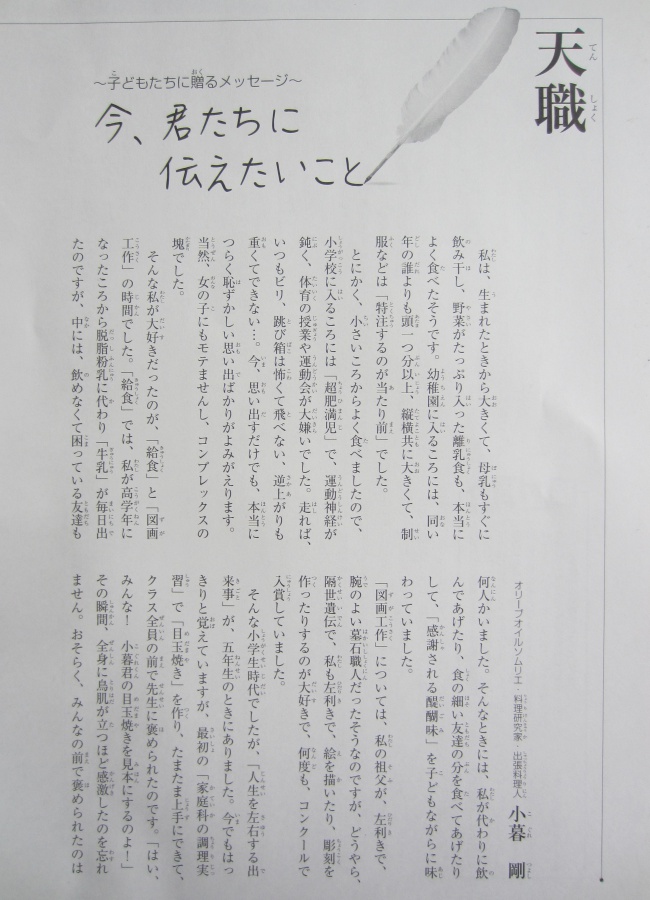 天職
～子どもたちに贈るメッセージ～
今、君たちに
伝えたいこと
私は、生まれたときから大きくて、母乳もすぐに
飲み干し、野菜がたっぷり入った離乳食も、本当に
よく食べたそうです。幼稚園に入るころには、同い
年の誰よりも頭一つ分以上、縦横共に大きくて、制
服などは「特注するのが当たり前」でした。
とにかく、小さいころからよく食べましたので、
小学校に入るころには「超肥満児」で、運動神経が
鈍く、体育の授業や運動会が大嫌いでした。走れば、
いつもビリ、跳び箱は怖くて飛べない、逆上がりも
重くてできない…。今、思い出すだけでも、本当に
つらく恥ずかしい思い出ばかりがよみがえります。
当然、女の子にもモテませんし、コンプレックスの
塊でした。
そんな私が大好きだったのが、「給食」と「図画
工作」の時間でした。「給食」では、私が高学年に
なったころから脱脂粉乳に代わり「牛乳」が毎日出
たのですが、中には、飲めなくて困っている友達も
オリーブオイルソムリエ 料理研究家・出張料理人 小暮 剛
何人かいました。そんなときには、私が代わりに飲
んであげたり、食の細い友達の分を食べてあげたり
して、「感謝される醍醐味」を子どもながらに味
わっていました。
「図画工作」については、私の祖父が、左利きで、
腕のよい墓石職人だったそうなのですが、どうやら、
隔世遺伝で、私も左利きで、絵を描いたり、彫刻を
作ったりするのが大好きで、何度も、コンクールで
入賞していました。
そんな小学生時代でしたが、「人生を左右する出
来事」が、五年生のときにありました。今でもはっ
きりと覚えていますが、最初の「家庭科の調理実
習」で「目玉焼き」を作り、たまたま上手にできて、
クラス全員の前で先生に褒められたのです。「はい、
みんな！ 小暮君の目玉焼きを見本にするのよ！」
その瞬間、全身に鳥肌が立つほど感激したのを忘れ
ません。おそらく、みんなの前で褒められたのは